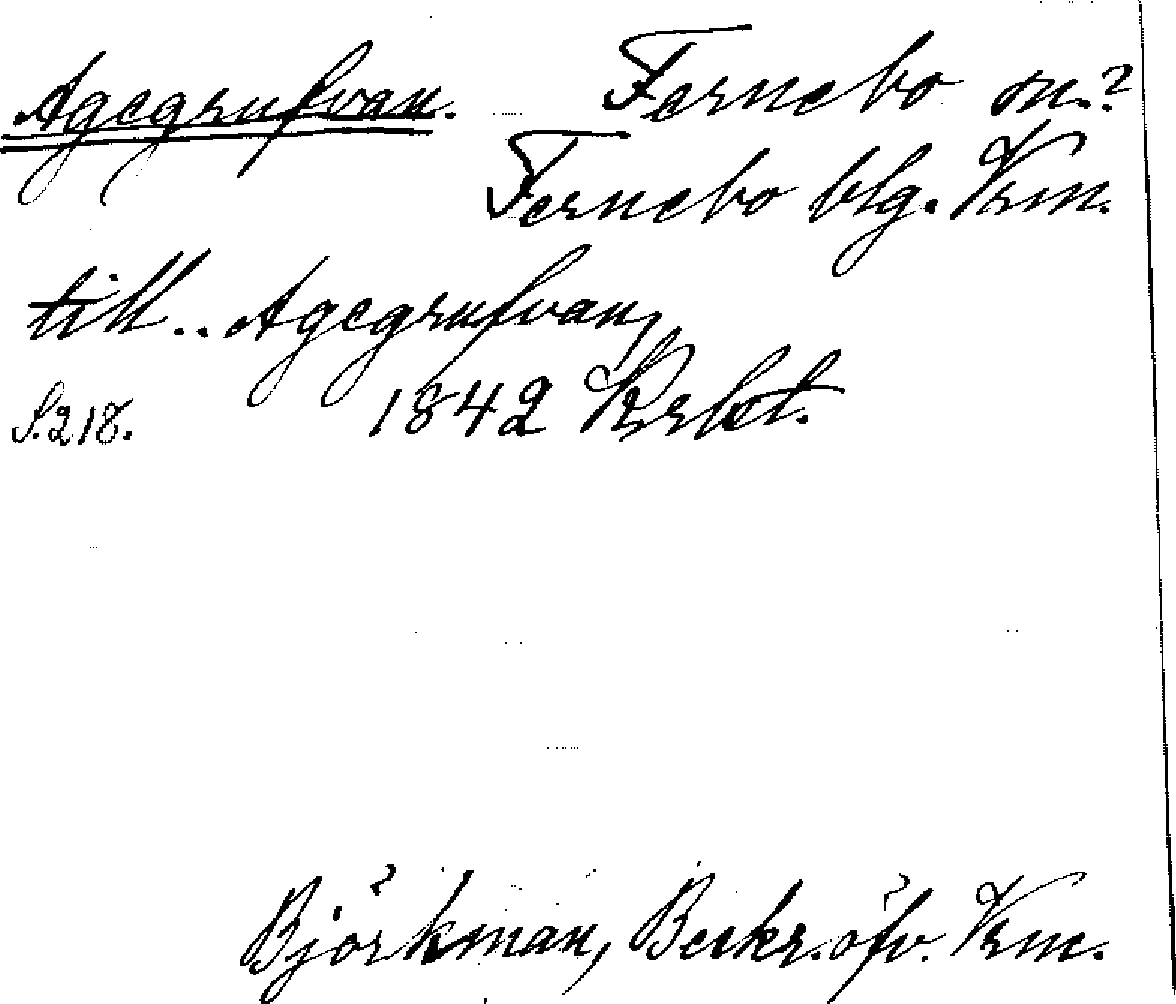 Agegrufvan. Fernebo sn.?
Fernebo blg. Vrm.
till.. Agegrufvan,
S. 218. 1842
Björkman, Beskr. öfv. Vrm.